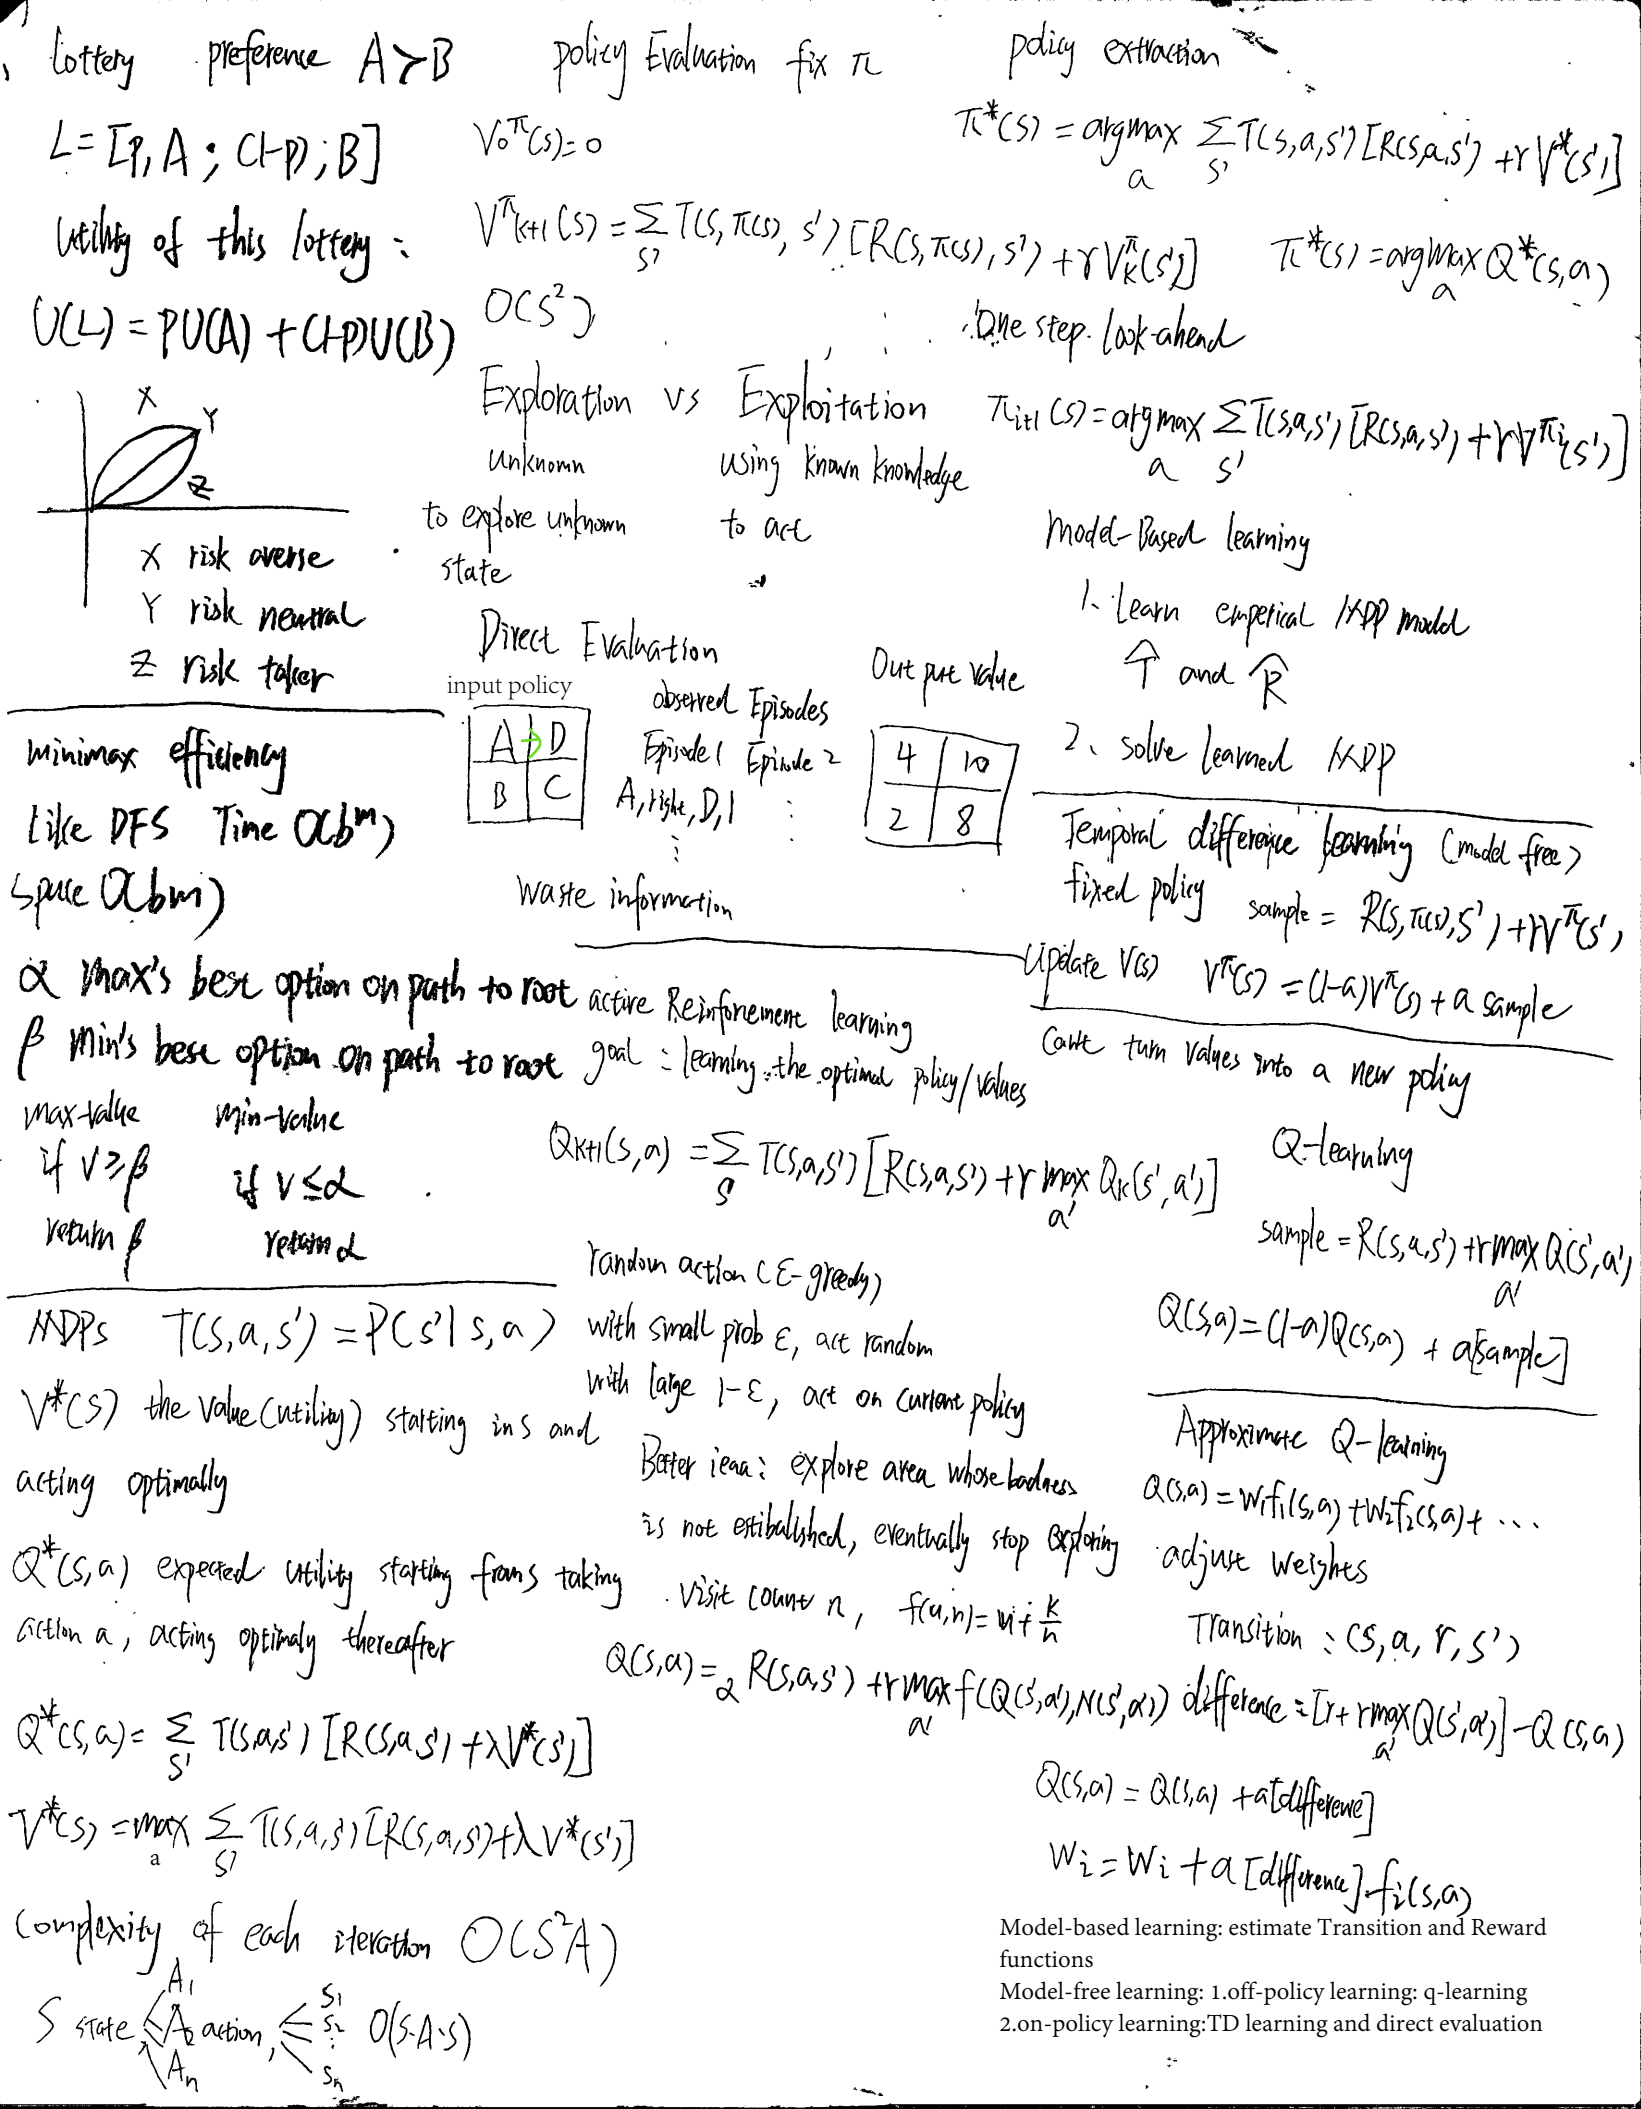 Lottery preference A≻B
L=[P,A; (1-P);B]
Utility of this lottery:
U(L)=PU(A)+(1-P)U(B)
X
Y
Z
X risk averse
Y risk neutral
Z risk taker
minimax efficiency
Like DFS Time O(b^m)
space O(bm)
α max's best option on path to root
β Min's best option on path to root
max-value min-value
if v≥β
if v≤α
return β
return α
MDPs T(s,a,s')=P(s'|s,a)
V*(s) the value(utility) starting in s and
acting optimally
Q*(s,a) expected utility starting from s taking
action a, acting optimaly thereafter
Q*(s,a)=∑s' T(s,a,s')[R(s,a,s')+λV*(s')]
V*(s)=max a ∑s' T(s,a,s')[R(s,a,s')+λV*(s')]
Complexity of each iteration O(S²A)
A1
S state A2 action, S1 S2 : O(S·A·S)
An Sn
policy Evaluation fix π
V0^π(s)=0
V^π k+1(s)=∑s' T(s,π(s),s')[R(s,π(s),s')+γV^π k(s')]
O(S²)
Exploration vs Exploitation
unknown using known knowledge
to explore unknown to act
state
Direct Evaluation
input policy
observed Episodes
Output value
A→D
B C
Episode 1 Episode 2
A, right, D, 1 :
:
4 10
2 8
Waste information
active Reinforcement learning
goal: learning the optimal policy/values
Qk+1(s,a)=∑s T(s,a,s')[R(s,a,s')+γ max a' Qk(s',a')]
random action (ε-greedy)
with small prob ε, act random
with large 1-ε, act on current policy
Better ieaa: explore area whose badness
is not estiballshed, eventually stop exploring
visit count n, f(u,n)=u+k/n
Q(s,a)=α R(s,a,s')+γ max a' f(Q(s',a'),N(s',a'))
policy extraction
π*(s)=argmax a ∑s' T(s,a,s')[R(s,a,s')+γV*(s')]
π*(s)=argmax a Q*(s,a)
One step look-ahead
πi+1(s)=argmax a ∑s' T(s,a,s')[R(s,a,s')+γV^πi(s')]
Model-Based learning
1. Learn emperical MDP model
T̂ and R̂
2、solve learned MDP
Temporal difference learning (model free)
fixed policy sample = R(s,π(s),s')+γV^π(s')
Update V(s) V^π(s)=(1-a)V^π(s)+a sample
Can't turn values into a new policy
Q-learning
sample=R(s,a,s')+γ max a' Q(s',a')
Q(s,a)=(1-a)Q(s,a)+a[sample]
Approximate Q-learning
Q(s,a)=W1f1(s,a)+W2f2(s,a)+...
adjust weights
Transition: (s,a,r,s')
difference=[r+γ max a' Q(s',a')]-Q(s,a)
Q(s,a)=Q(s,a)+a[difference]
Wi=Wi+a[difference].fi(s,a)
Model-based learning: estimate Transition and Reward
functions
Model-free learning: 1.off-policy learning: q-learning
2.on-policy learning:TD learning and direct evaluation